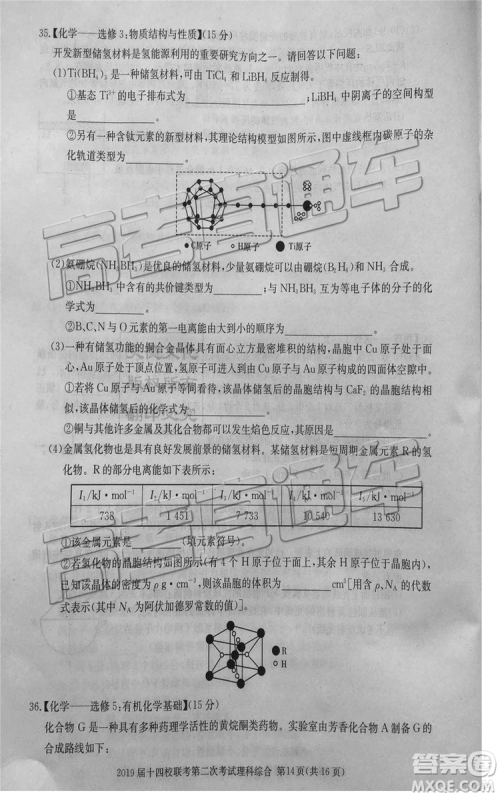 35.【化学——选修3:物质结构与性质】(15分)
开发新型储氢材料是氢能源利用的重要研究方向之一。请回答以下问题:
(1)Ti(BH₄)₃是一种储氢材料,可由TiCl₄和LiBH₄反应制得。
①基态Ti³⁺的电子排布式为____________;LiBH₄中阴离子的空间构型
是____________。
②另有一种含钛元素的新型材料,其理论结构模型如图所示,图中虚线框内碳原子的杂
化轨道类型为____________。
C原子 H原子 Ti原子
(2)氨硼烷(NH₃BH₃)是优良的储氢材料,少量氨硼烷可以由硼烷(B₂H₆)和NH₃合成。
①NH₃BH₃中含有的共价键类型为____________;与NH₃BH₃互为等电子体的分子的化
学式为____________。
②B、C、N与O元素的第一电离能由大到小的顺序为____________。
(3)一种有储氢功能的铜合金晶体具有面心立方最密堆积的结构,晶胞中Cu原子处于面
心,Au原子处于顶点位置,氢原子可进入到由Cu原子与Au原子构成的四面体空隙中。
①若将Cu原子与Au原子等同看待,该晶体储氢后的晶胞结构与CaF₂的晶胞结构相
似,该晶体储氢后的化学式为____________。
②铜与其他许多金属及其化合物都可以发生焰色反应,其原因是____________。
(4)金属氢化物也是具有良好发展前景的储氢材料。某储氢材料是短周期金属元素R的氢
化物。R的部分电离能如下表所示:
I₁/kJ·mol⁻¹ I₂/kJ·mol⁻¹ I₃/kJ·mol⁻¹ I₄/kJ·mol⁻¹ I₅/kJ·mol⁻¹
738 1 451 7 733 10 540 13 630
①该金属元素是____________(填元素符号)。
②若氢化物的晶胞结构如图所示(有4个H原子位于面上,其余H原子位于晶胞内),
已知该晶体的密度为ρ g·cm⁻³,则该晶胞的体积为____________cm³[用含ρ、N_A的代数
式表示(其中N_A为阿伏加德罗常数的值)]。
R
H
36.【化学——选修5:有机化学基础】(15分)
化合物G是一种具有多种药理学活性的黄烷酮类药物。实验室由芳香化合物A制备G的
合成路线如下:
2019届十四校联考第二次考试理科综合 第14页(共16页)
高考直通车
高考直通车